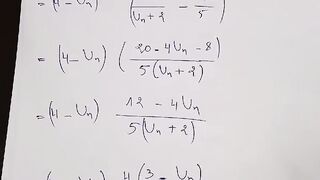 = (4 - Un) ( / Un + 2 - / 5 )
= (4 - Un) ( 20 - 4Un - 8 / 5(Un + 2) )
= (4 - Un) 12 - 4Un / 5(Un + 2)
4(3 - Un)